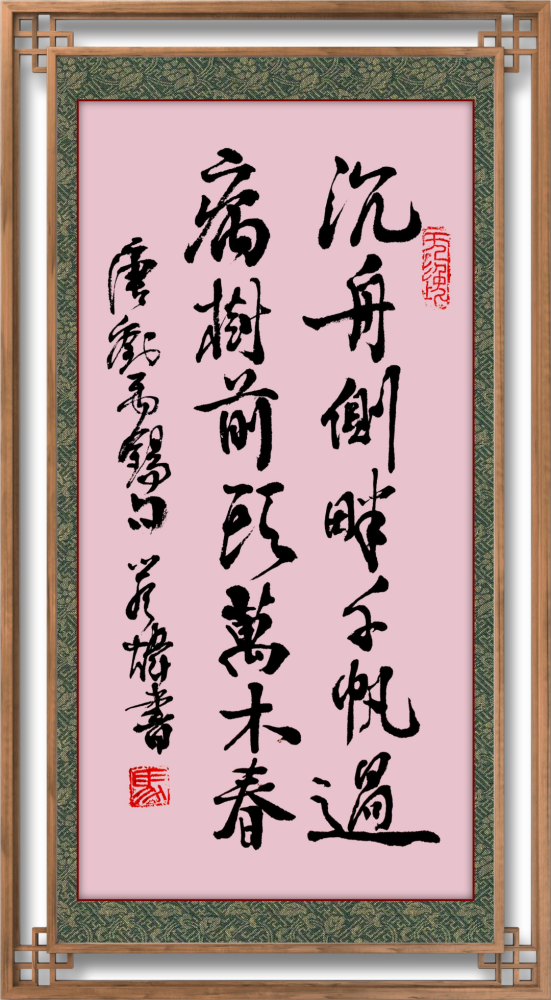 沉舟側畔千帆過
病樹前頭萬木春
唐劉禹錫句 書
馬